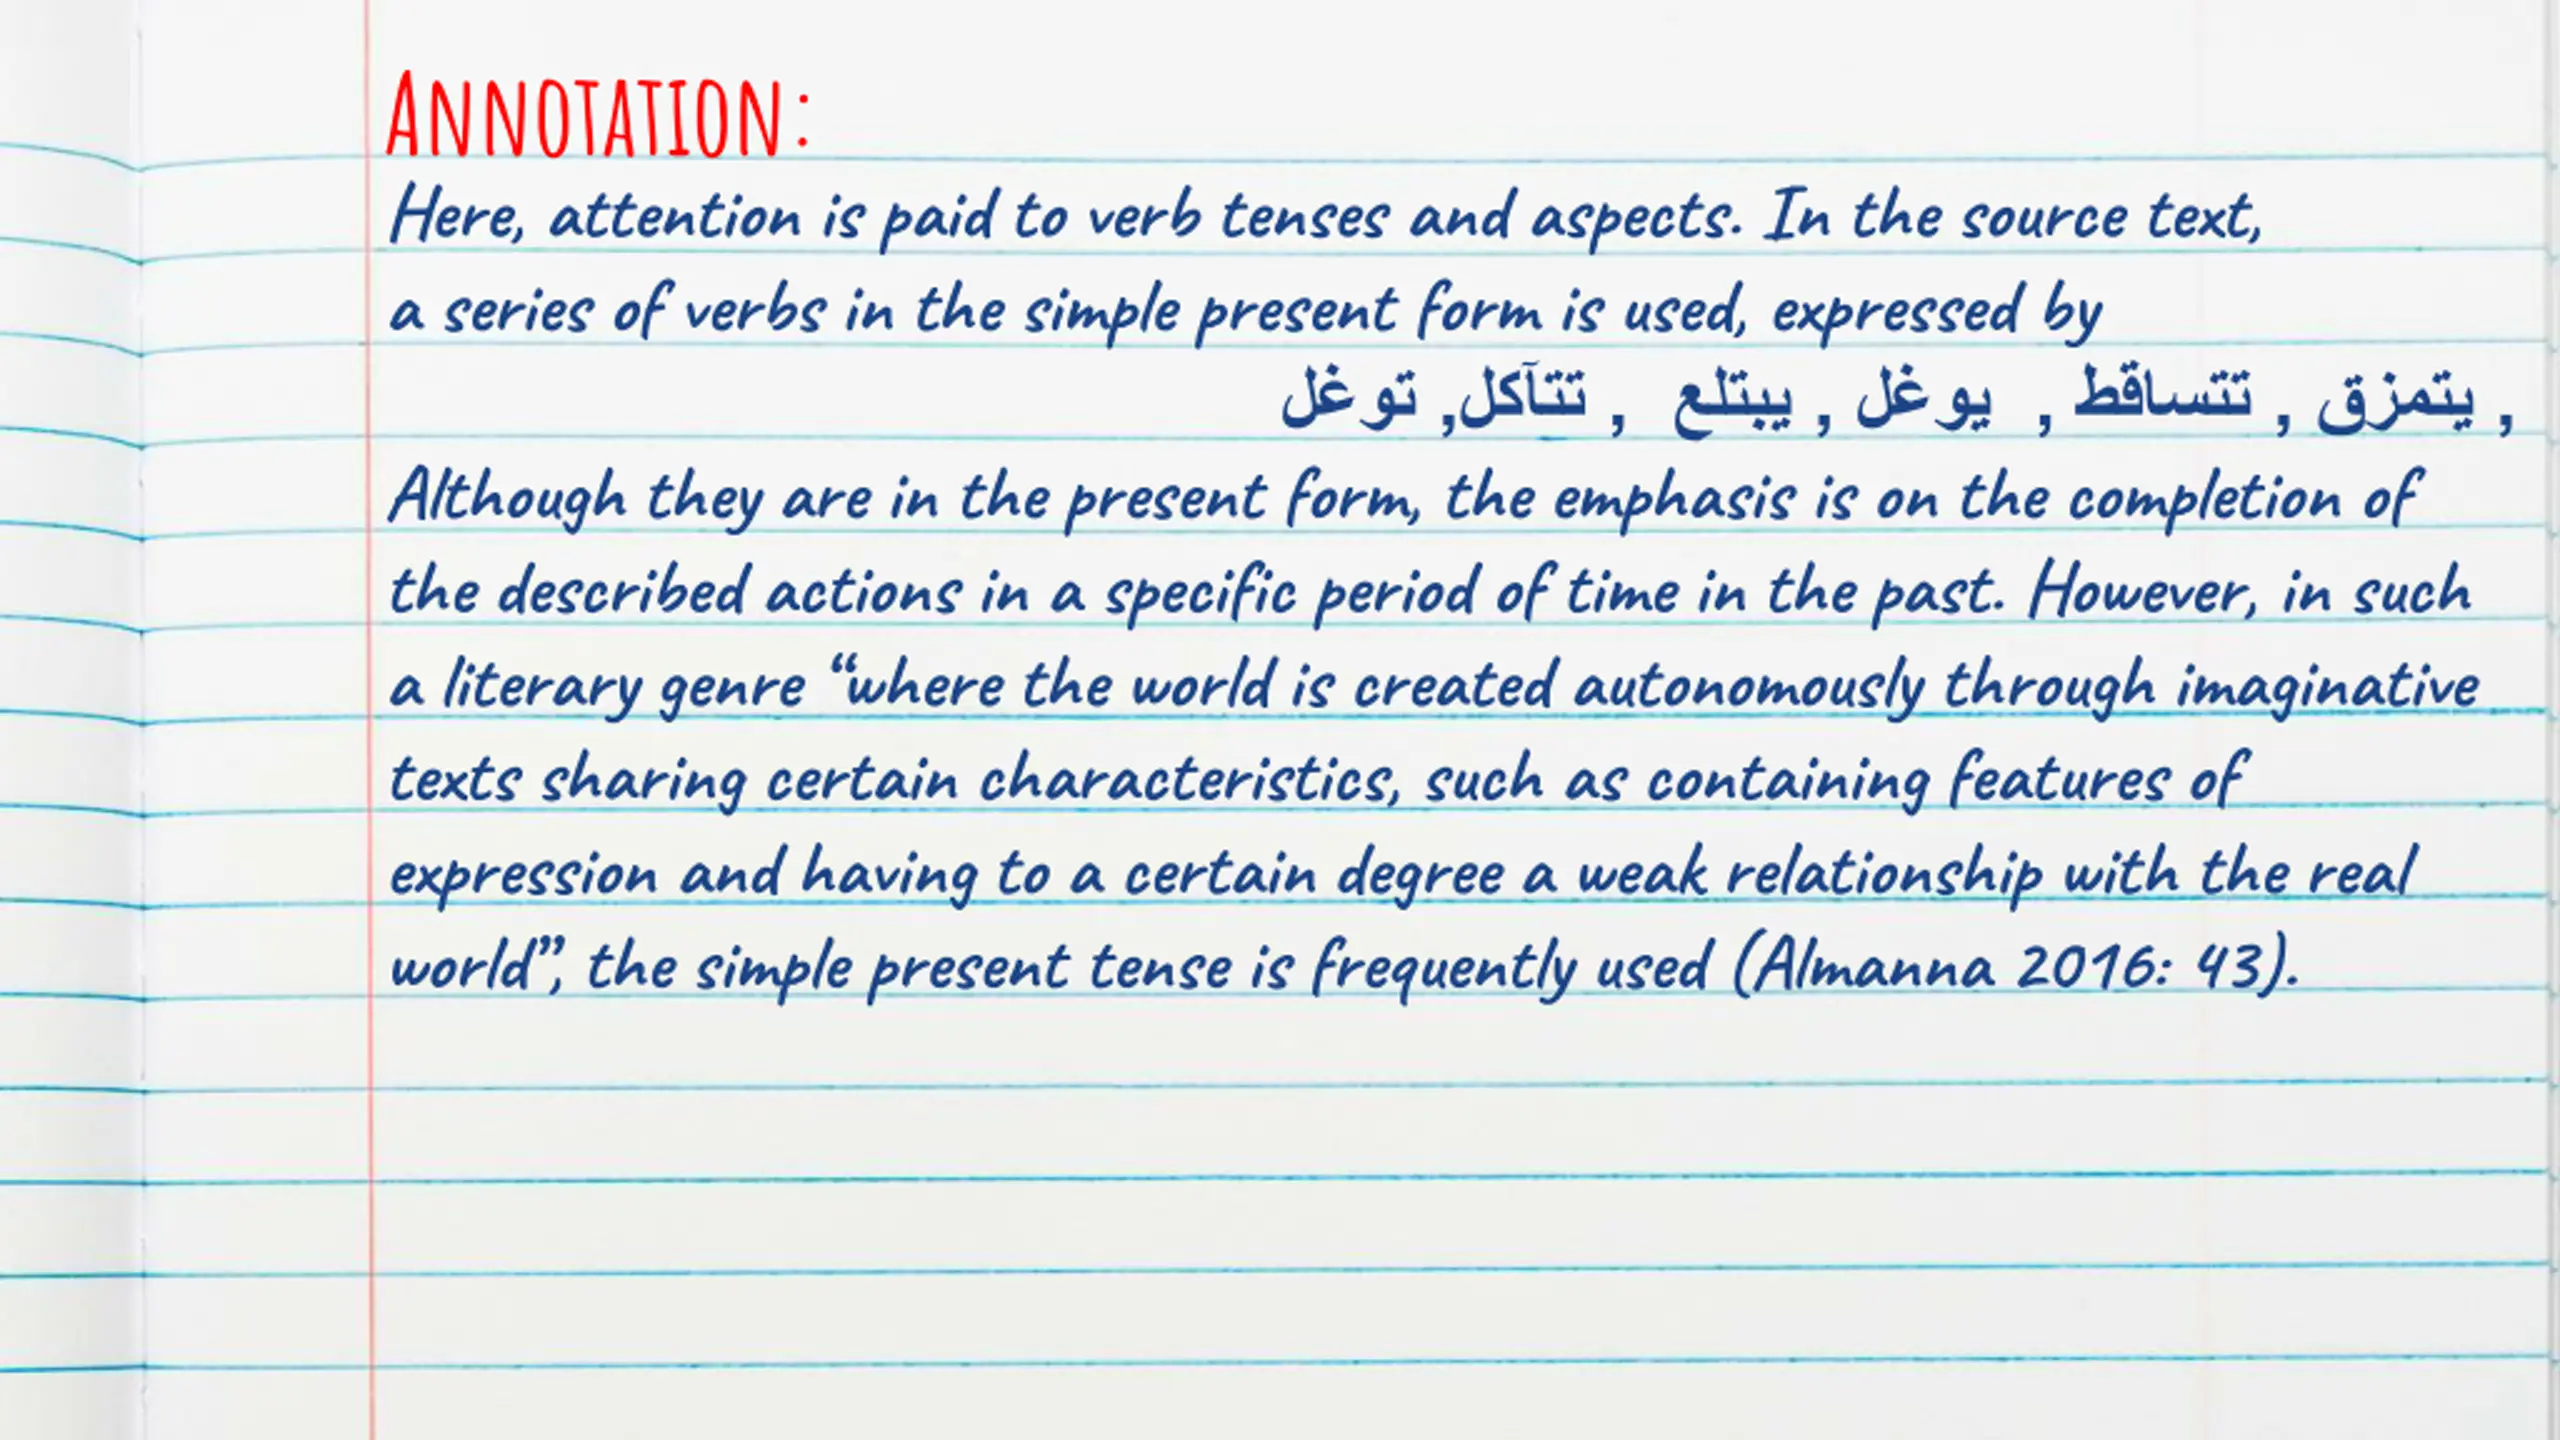 ANNOTATION:
Here, attention is paid to verb tenses and aspects. In the source text,
a series of verbs in the simple present form is used, expressed by
, يتمزق , تتساقط , يوغل , يبتلع , تتآكل, توغل
Although they are in the present form, the emphasis is on the completion of
the described actions in a specific period of time in the past. However, in such
a literary genre “where the world is created autonomously through imaginative
texts sharing certain characteristics, such as containing features of
expression and having to a certain degree a weak relationship with the real
world”, the simple present tense is frequently used (Almanna 2016: 43).